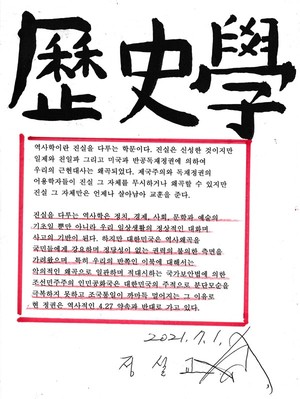 歷史學
역사학이란 진실을 다루는 학문이다. 진실은 신성한 것이지만
일제와 친일과 그리고 미국과 반공독재정권에 의하여
우리의 근현대사는 왜곡되었다. 제국주의와 독재정권의
어용학자들이 진실 그 자체를 무시하거나 왜곡할 수 있지만
진실 그 자체만은 언제나 살아남아 교훈을 준다.
진실을 다루는 역사학은 정치, 경제, 사회, 문학과 예술의
기초일 뿐만 아니라 우리 일상생활의 정상적인 대화며
사고의 기반이 된다. 하지만 대한민국은 역사왜곡을
국민들에게 강요하며 정당성이 없는 권력의 불의한 측면을
가려왔으며 특히 우리의 반쪽인 이북에 대해서는
악의적인 왜곡으로 일관하며 적대시하는 국가보안법에 의한
조선민주주의 인민공화국은 대한민국의 주적으로 분단모순을
극복하지 못하고 조국통일이 까마득 멀어지는 그 이유로
현 정권은 역사적인 4.27 약속과 반대로 가고 있다.
2021.7.1.
정설교